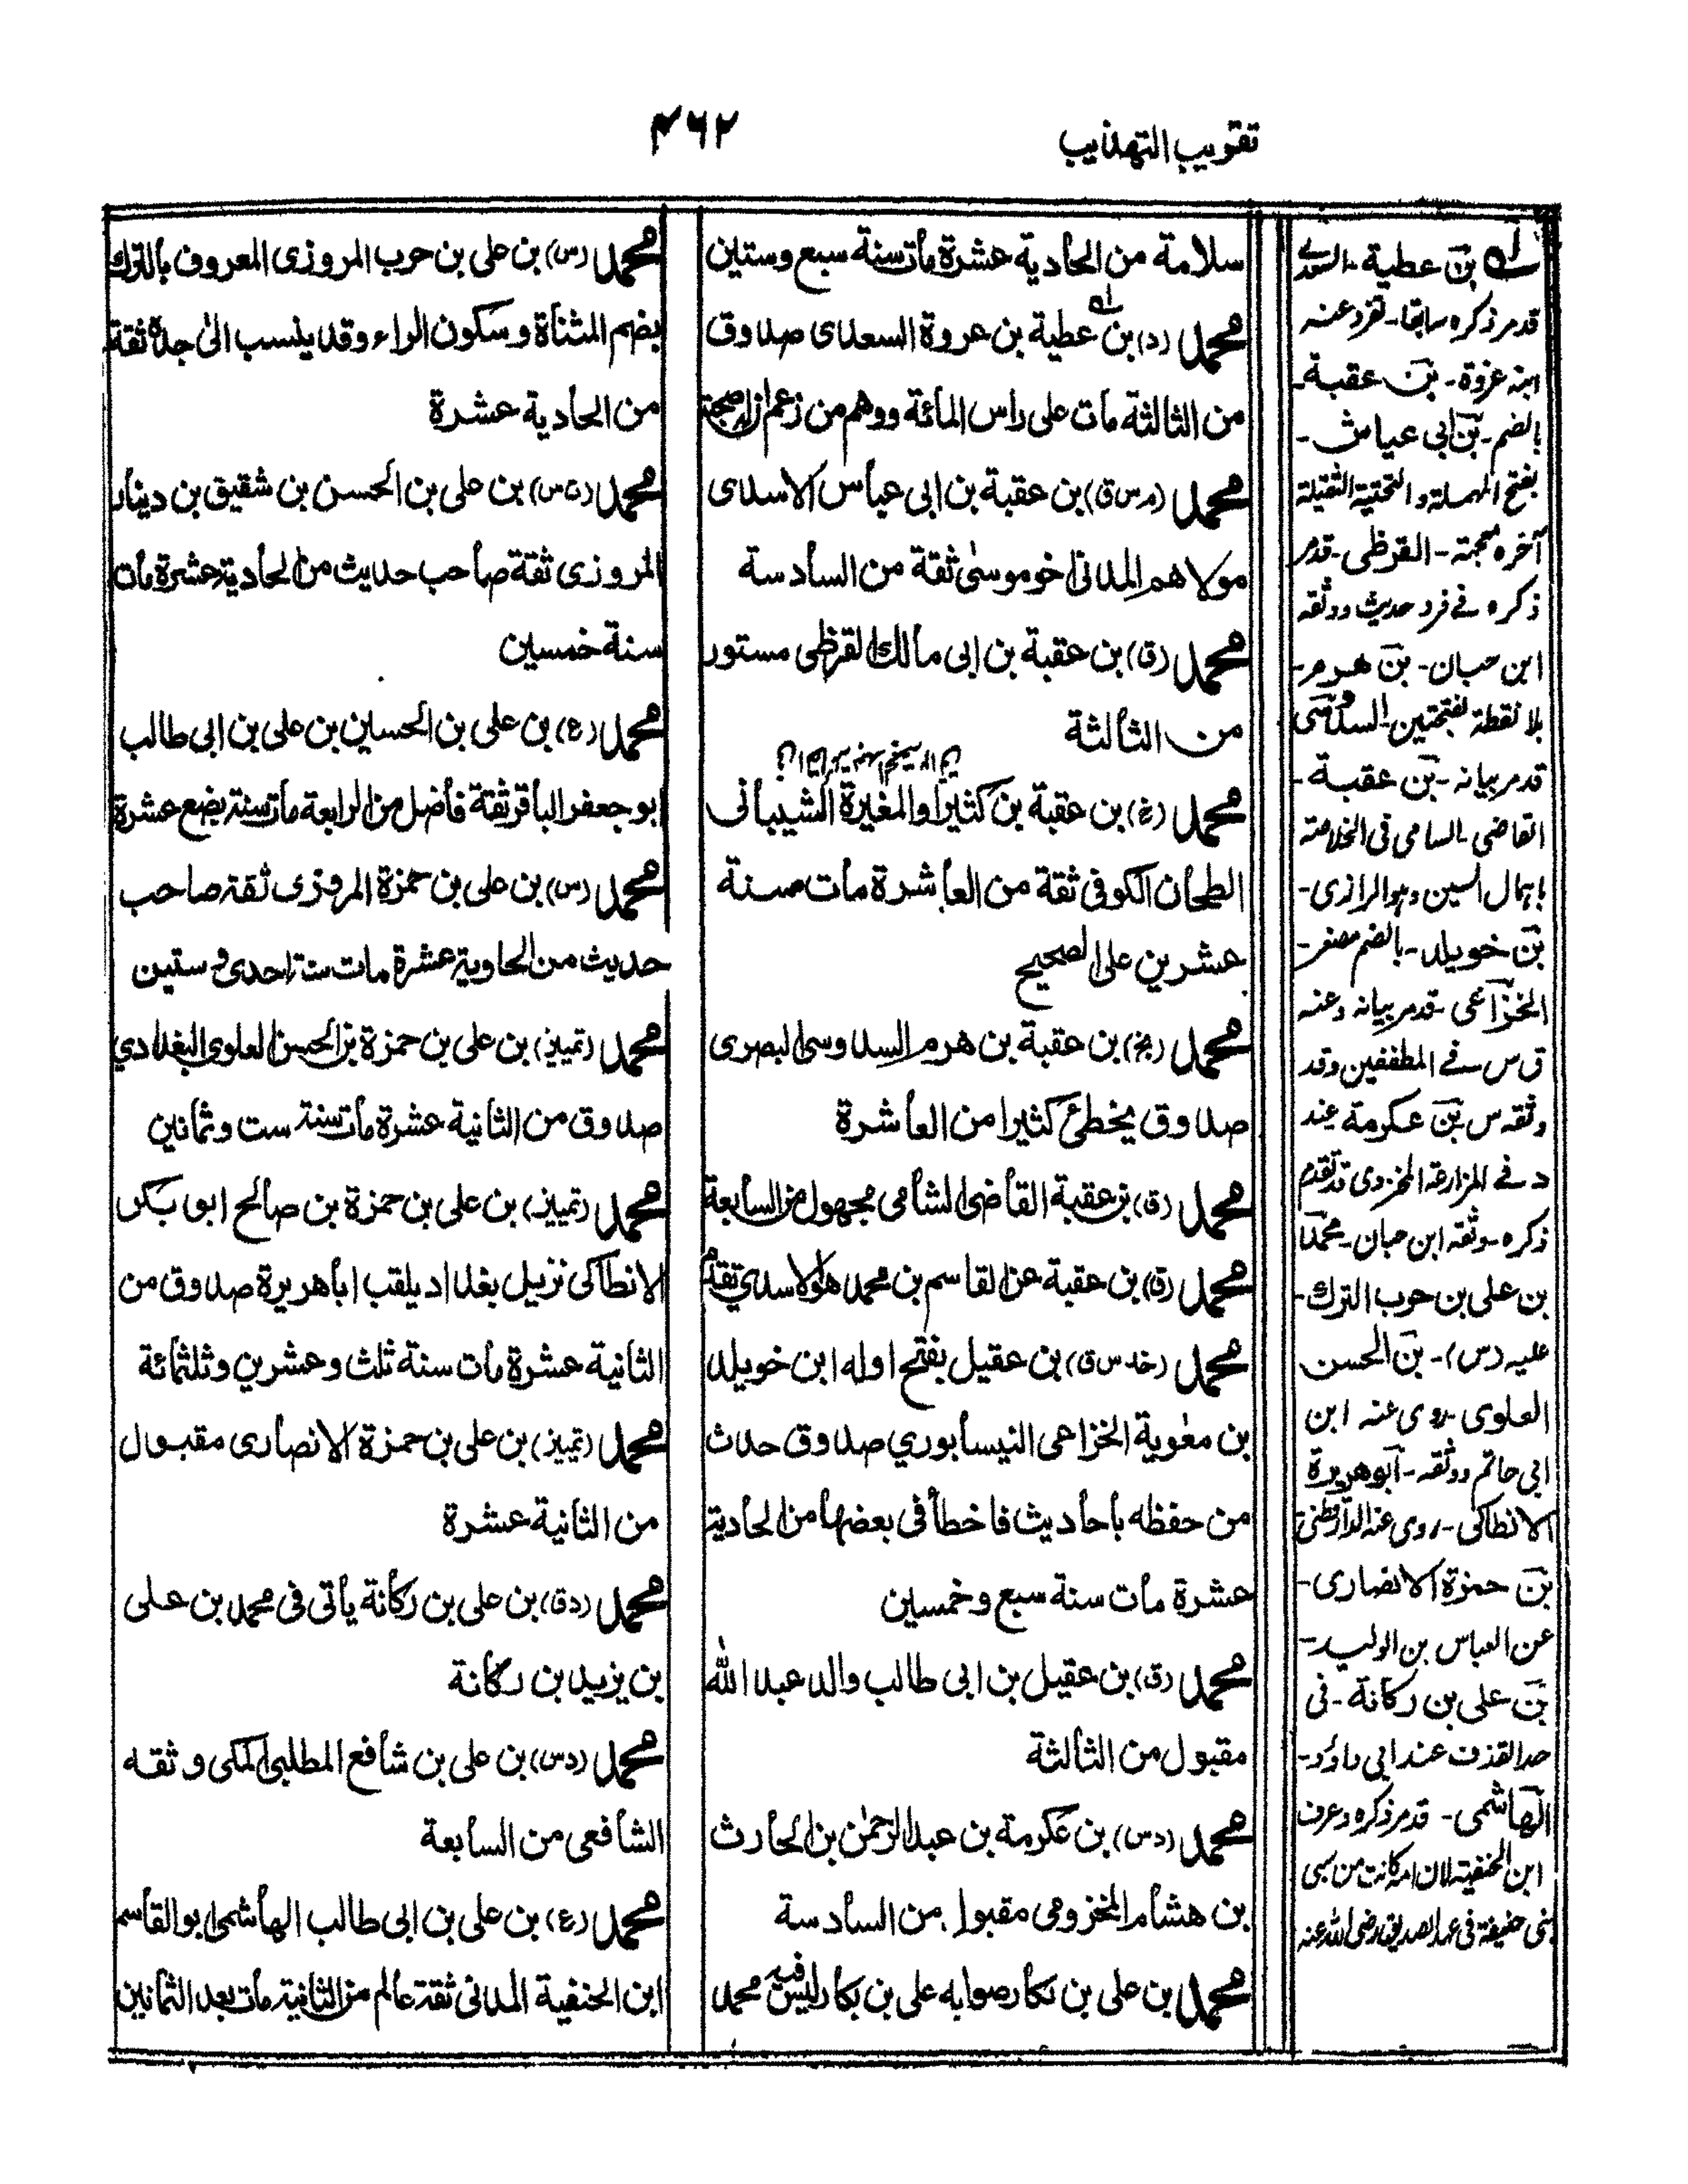 تقريب التهذيب
۴۶۲
سلامة من الحادية عشرة مات سنة سبع وستين
محمد (د) بن عطية بن عروة السعدى صدوق
من الثالثة مات على راس المائة ووهم من زعم ان له صحبة
محمد (م س ق) بن عقبة بن ابى عياس الاسدى
مولاهم المدنى اخو موسىٰ ثقة من السادسة
محمد (ق) بن عقبة بن ابى مالك القرظى مستور
من الثالثة
محمد (خ) بن عقبة بن كثير او المغيرة الشيبانى
الطحان الكوفى ثقة من العاشرة مات سنة
عشرين على الصحيح
محمد (بخ) بن عقبة بن هرم السدوسى البصرى
صدوق يخطئ كثيرا من العاشرة
محمد (ق) بن عقبة القاضى الشامى مجهول من السابعة
محمد (ق) بن عقبة عن القاسم بن محمد هو الاسدي تقدم
محمد (خد س ق) بن عقيل بفتح اوله ابن خويلد
بن معٰوية الخزاعى النيسابوري صدوق حدث
من حفظه باحاديث فاخطأ فى بعضها من الحادية
عشرة مات سنة سبع وخمسين
محمد (ق) بن عقيل بن ابى طالب والد عبد الله
مقبول من الثالثة
محمد (د س) بن عكرمة بن عبد الرحمٰن بن الحارث
بن هشام المخزومى مقبول من السادسة
محمد بن على بن بكار صوابه على بن بكار ليس فيه محمد
محمد (س) بن على بن حرب المروزى المعروف بالترك
بضم المثناة وسكون الراء وقد ينسب الىٰ جده ثقة
من الحادية عشرة
محمد (ت س) بن على بن الحسن بن شقيق بن دينار
المروزى ثقة صاحب حديث من الحادية عشرة مات
سنة خمسين
محمد (ع) بن على بن الحسين بن على بن ابى طالب
ابو جعفر الباقر ثقة فاضل من الرابعة مات سنة بضع عشرة
محمد (س) بن على بن حمزة المروزى ثقة صاحب
حديث من الحاوية عشرة مات سنة احدى وستين
محمد (تمييز) بن على بن حمزة بن الحسن العلوى البغدادي
صدوق من الثانية عشرة مات سنة ست وثمانين
محمد (تمييز) بن على بن حمزة بن صالح ابو بكر
الانطاكى نزيل بغداد يلقب ابا هريرة صدوق من
الثانية عشرة مات سنة ثلث وعشرين وثلثمائة
محمد (تمييز) بن على بن حمزة الانصارى مقبول
من الثانية عشرة
محمد (د ق) بن على بن ركانة يأتى فى محمد بن على
بن يزيد بن ركانة
محمد (د س) بن على بن شافع المطلبى المكى وثقه
الشافعى من السابعة
محمد (ع) بن على بن ابى طالب الهاشمى ابو القاسم
ابن الحنفية المدنى ثقة عالم من الثانية مات بعد الثمانين
بن عطية - السعدے
قد مر ذكره سابقا - تفرد عنه
ابنه عروة - بن عقبة -
بالضم - بن ابى عياش -
بفتح المهملة والتحتية الثقيلة
آخره معجمة - القرظى - قد مر
ذكره فے فرد حديث ووثقه
ابن حبان - بن هرم -
بلا نقطة بفتحتين - السدوسى
قد مر بيانه - بن عقبة -
القاضى - السامى فى الخلاصة
باهمال السين وهو الرازى -
بن خويلد - بالضم مصغر -
الخزاعى - قد مر بيانه وعنه
ق س فے المطففين وقد
وثقه س بن عكرمة عند
د فے المزارعة المخزومى قد تقدم
ذكره - وثقه ابن حبان - محمد
بن على بن حرب الترك -
عليه (س) - بن الحسن
العلوى - روى عنه ابن
ابى حاتم ووثقه - ابو هريرة
الانطاكى - روى عنه الدارقطنى
بن حمزة الانصارى -
عن العباس بن الوليد -
بن على بن ركانة - فى
حد القذف عند ابى داؤد -
الهاشمى - قد مر ذكره وعرف
ابن الحنفية لان امه كانت من سبى
بنى حنيفة فى عهد الصديق رضى الله عنه